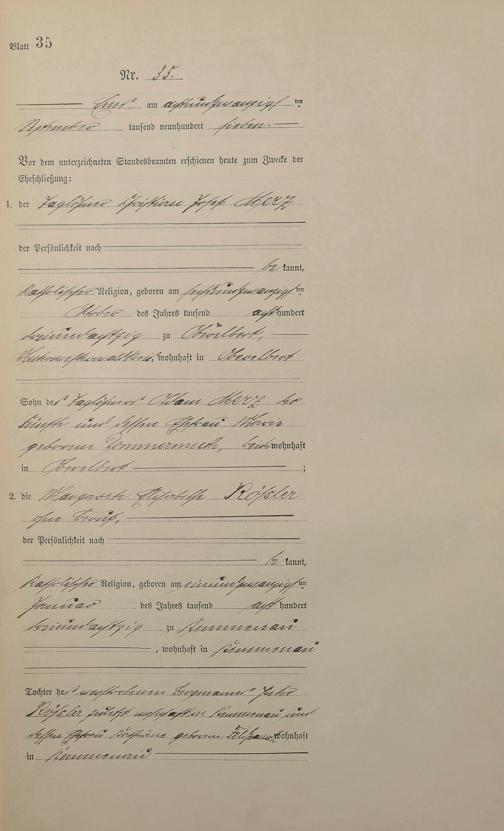 Blatt 35
Nr. 35.
Ems am achtundzwanzigsten
September tausend neunhundert sieben.
Vor dem unterzeichneten Standesbeamten erschienen heute zum Zwecke der
Eheschließung:
1. der Taglöhner Christian Josef Merz
der Persönlichkeit nach
be kannt,
katholischer Religion, geboren am sechsundzwanzigsten
Oktober des Jahres tausend acht hundert
dreiundachtzig zu Oberelbert,
Unterwesterwaldkreis, wohnhaft in Oberelbert
Sohn des Taglöhners Adam Merz
und dessen Ehefrau Maria
geborenen Zimmermuth, beide wohnhaft
in Oberelbert ;
2. die Margareta Elisabetha Rößler
ohne Beruf,
der Persönlichkeit nach
be kannt,
katholischer Religion, geboren am einundzwanzigsten
Januar des Jahres tausend acht hundert
dreiundachtzig zu Kemmenau
, wohnhaft in Kemmenau
Tochter des verstorbenen Bergmannes
Rößler zuletzt wohnhaft in Kemmenau und
dessen Ehefrau geborenen wohnhaft
in Kemmenau